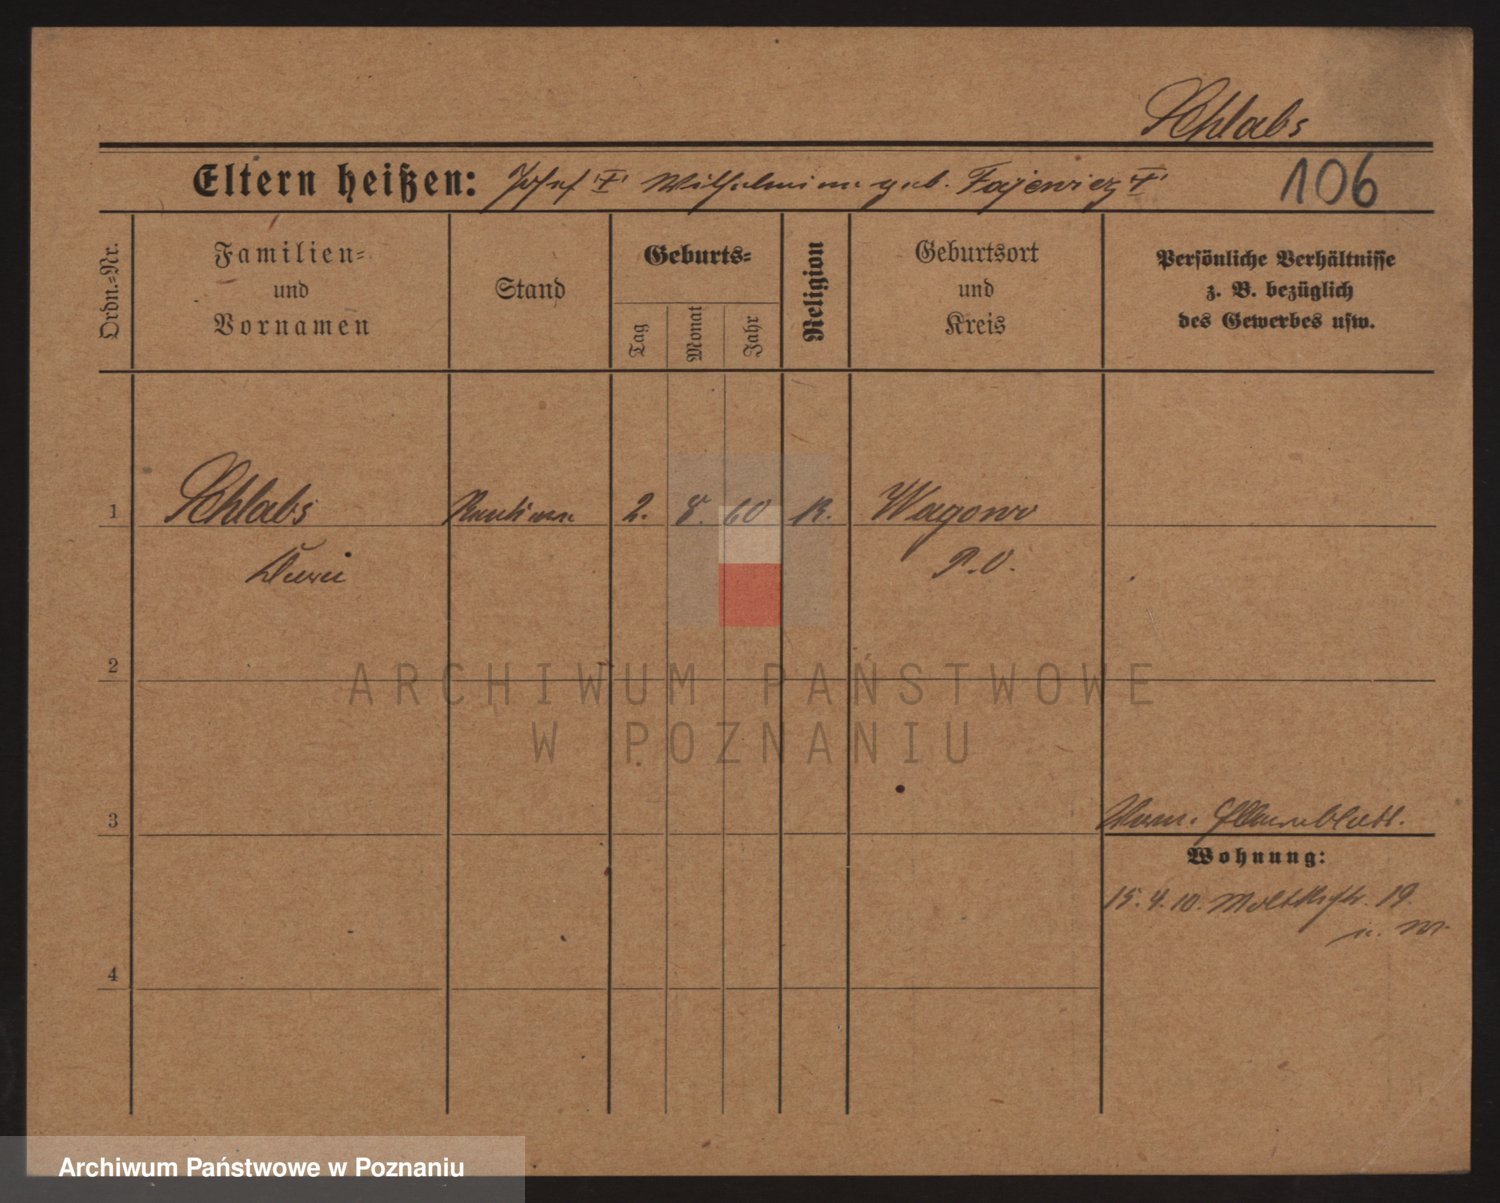 Chlabs
Eltern heißen: Josef † Wilhelmine geb. Fajewicz †
106
Ordn.-Nr.
Familien-
und
Vornamen
Stand
Geburts-
Tag
Monat
Jahr
Religion
Geburtsort
und
Kreis
Persönliche Verhältnisse
z. B. bezüglich
des Gewerbes usw.
1
Chlabs
2. 8. 60
K.
Wagowo
P.O.
2
ARCHIWUM PAŃSTWOWE
W POZNANIU
3
Wohnung:
15. 4. 10. Moltkestr. 19
4
Archiwum Państwowe w Poznaniu